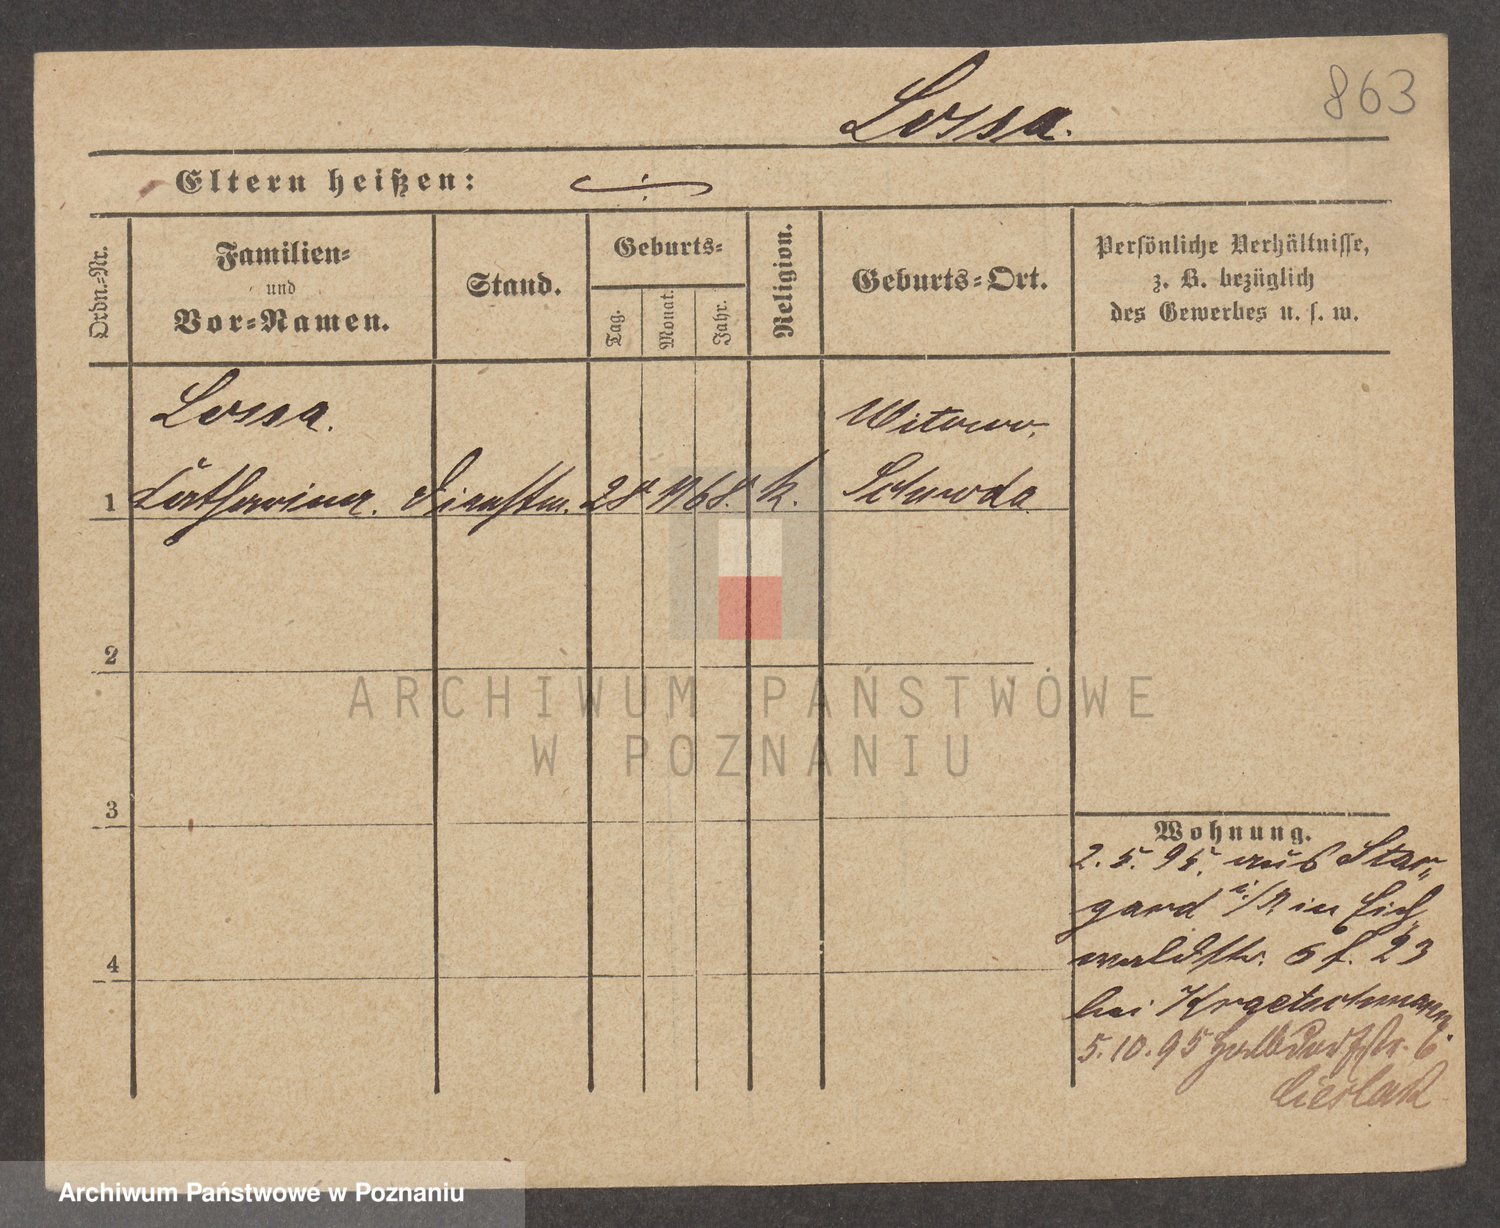 863
Lossa.
Eltern heißen:
Ordn.-Nr.
Familien-
und
Vor-Namen.
Stand.
Geburts-
Tag.
Monat.
Jahr.
Religion.
Geburts-Ort.
Persönliche Verhältnisse,
z. B. bezüglich
des Gewerbes u. s. w.
Lossa. Witowo,
1 Catharina. Dienstm. 28 68. k. Schroda
2
ARCHIWUM PAŃSTWOWE
W POZNANIU
3
4
Wohnung.
2. 5. 95. aus Star„
gard i/P in Eich„
waldstr. 23
bei Kretschmann.
5.10.95 Halbdorfstr. 6
Cieslak
Archiwum Państwowe w Poznaniu